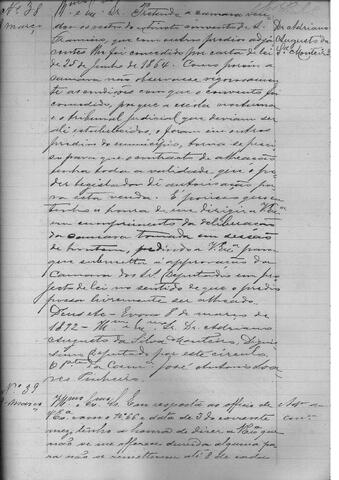 Nº 38
Março
Illmo e Exmo Sr. Pretende a camara ven-
der os restos do extincto convento de S.
Francisco, que com outros predios adja-
centes lhe foi concedido por carta de lei
de 25 de junho de 1864. Como porém a
camara não observasse rigorosamen-
te as condições com que o convento foi
concedido, porque a escola nocturna
e o tribunal judicial que deviam ser
ali estabelecidos, o foram em outros
predios do municipio, torna-se preci-
so para que o contracto de alheação
tenha toda a validade que o po-
der legislador dê autorisação pa-
ra esta venda. É por isso que
tenho a honra de me dirigir a V. Exa
em cumprimento da deliberação
da camara tomada em sessão
de hontem, pedindo a V. Exa para
que submetta á approvação da
Camara dos Srs Deputados um pro-
jecto de lei no sentido de que o predio
possa livremente ser alheado.
Deus gde Evora 8 de março de
1872 - Illmo e Exmo Sr. Dr. Adriano
Augusto da Silva Monteiro, Dignis-
simo Deputado por este circulo,
O Pte da Camª José Antonio Soa-
res Pinheiro.
Dr Adriano
Augusto da
Sª Monteiro
Nº 39
Março
Illmo e Exmo Sr. Em resposta ao officio de
V. Exª com o nº 66 e data de 3 do corrente
mez, tenho a honra de dizer a V. Exª que
não se me offerece duvida alguma pa-
ra não se remetterem até 8 de cada